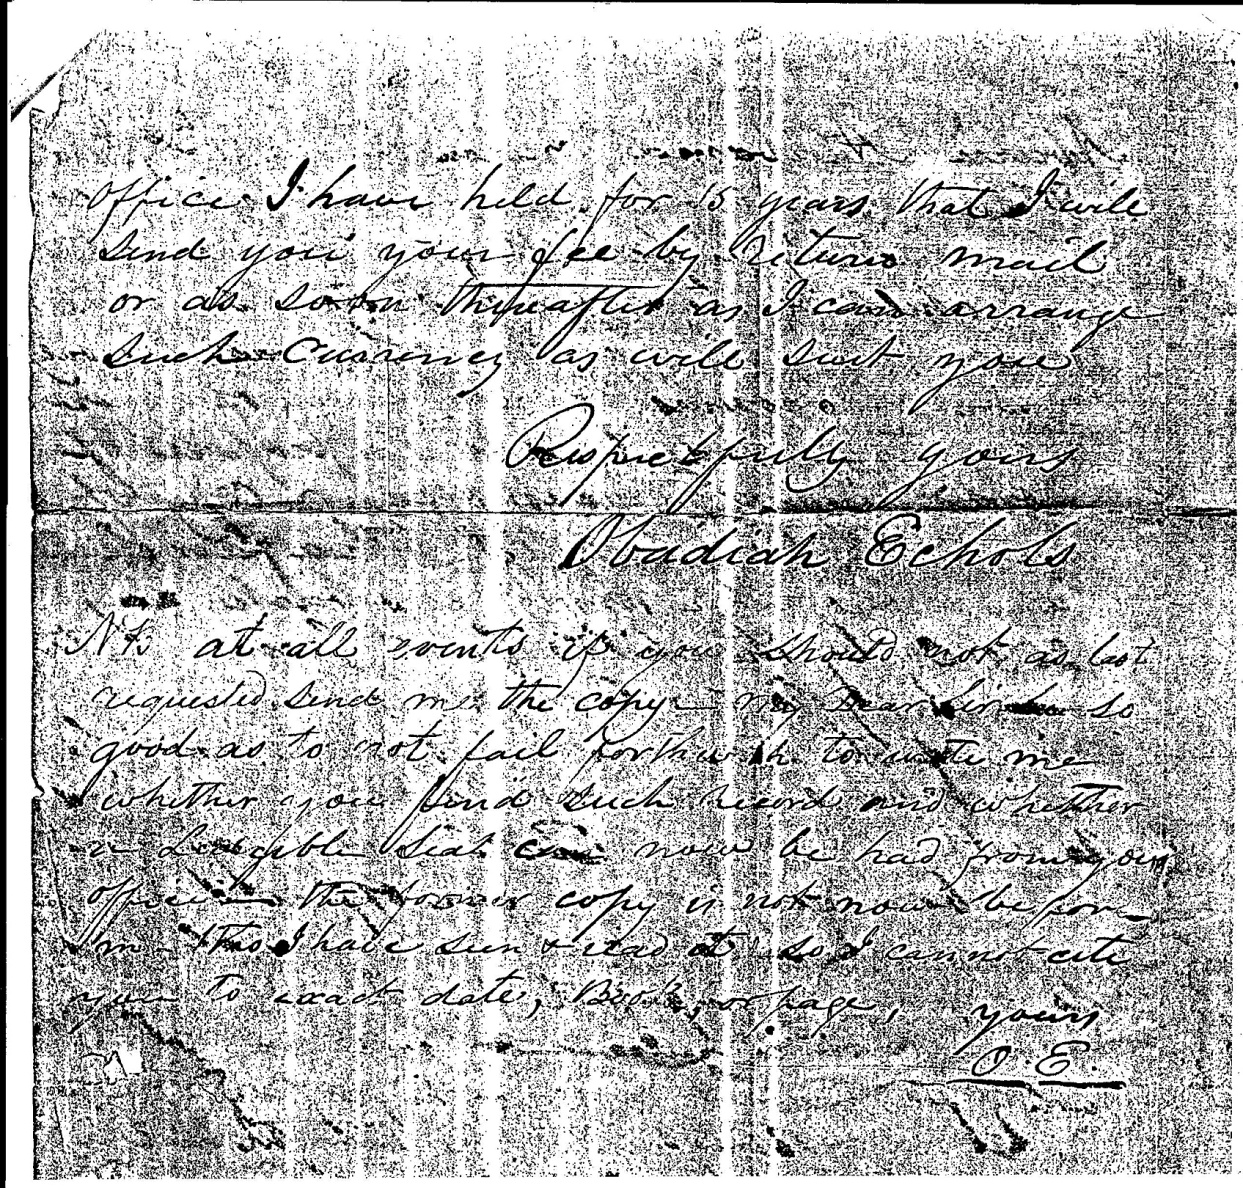 office I have held for 15 years that I will
send you your fee by return mail
or as soon thereafter as I can arrange
such Currency as will suit you
Respectfully yours
Obadiah Echols
NB at all events if you should not as last
requested send me the copy - my Dear Sir be so
good as to not fail forthwith to write me
whether you find such record and whether
a Legible Seal can now be had from your
office - the former copy is not now before
m - tho I have seen & read it so I cannot cite
you to exact date, Book, or page, yours
O. E.